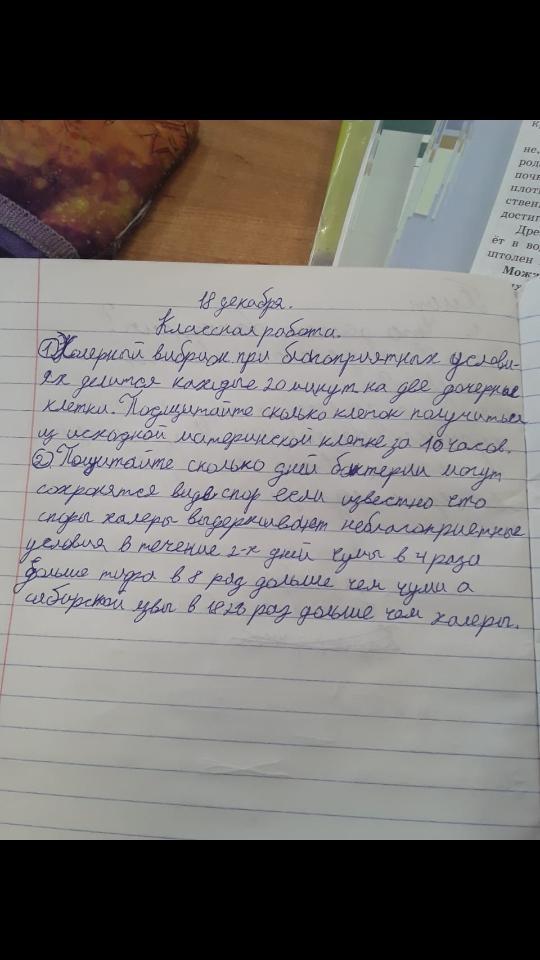 не.
род
почв
плот
ствен
достиг
Дре
ёт в во
штолен
Можн
18 декабря.
Классная работа.
1) Холерный вибрион при благоприятных услови-
ях делится каждые 20 минут на две дочерние
клетки. Подщитайте сколько клеток получиться
из исходной материнской клетке за 10 часов.
2) Пощитайте сколько дней бактерии могут
сохронятся виде спор если известно что
споры халеры выдерживают неблагоприятные
условия в течение 2-х дней чумы в 4 раза
больше тифа в 8 раз дольше чем чума а
сибирской язвы в 1828 раз дольше чем халеры.